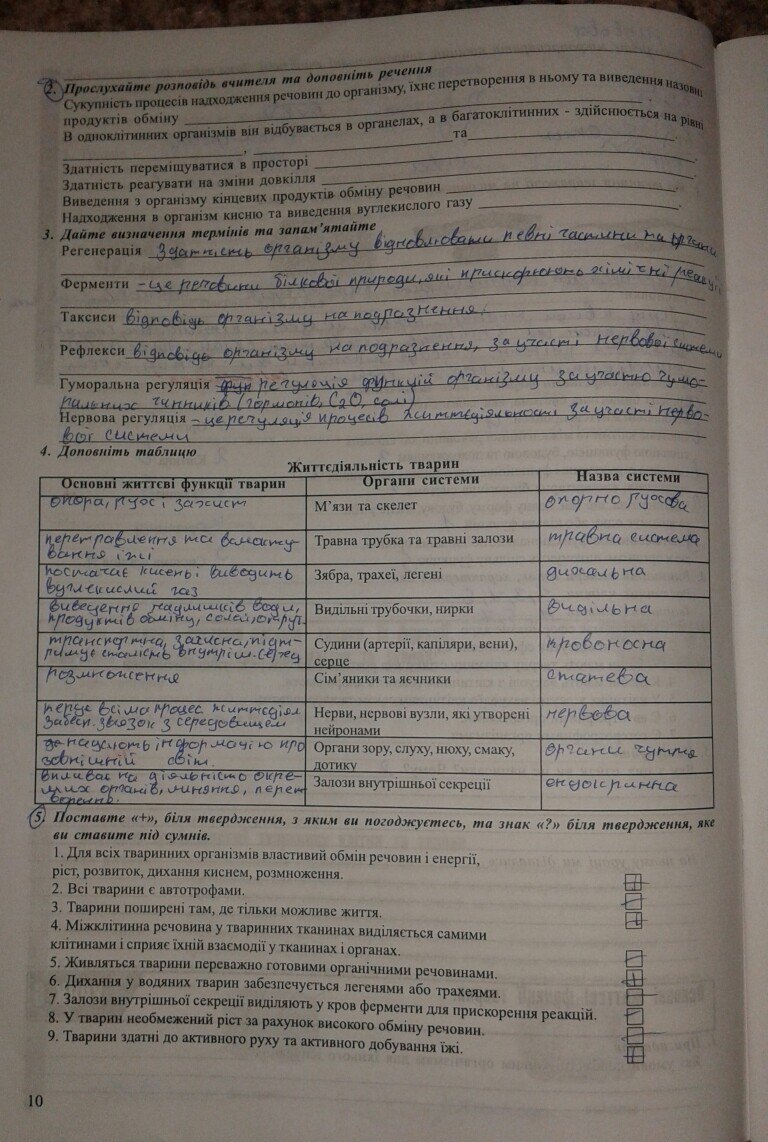 2. Прослухайте розповідь вчителя та доповніть речення
Сукупність процесів надходження речовин до організму, їхнє перетворення в ньому та виведення назовні
продуктів обміну
В одноклітинних організмів він відбувається в органелах, а в багатоклітинних - здійснюється на рівні
, та .
Здатність переміщуватися в просторі .
Здатність реагувати на зміни довкілля .
Виведення з організму кінцевих продуктів обміну речовин .
Надходження в організм кисню та виведення вуглекислого газу .
3. Дайте визначення термінів та запам’ятайте
Регенерація здатність організму відновлювати певні частини на органи
Ферменти – це речовини білкової природи, які прискорюють хімічні реакції
Таксиси відповідь організму на подразнення.
Рефлекси відповідь організму на подразнення, за участі нервової системи
Гуморальна регуляція регуляція функцій організму за участю гумо-
ральних чинників (гормонів, C2O, солі)
Нервова регуляція – це регуляція процесів життєдіяльності за участі нерво-
вої системи
4. Доповніть таблицю
Життєдіяльність тварин
Основні життєві функції тварин Органи системи Назва системи
опора, рух і захист М’язи та скелет опорно рухова
перетравлення та всмокту-
вання їжі Травна трубка та травні залози травна система
постачає кисень і виводить
вуглекислий газ Зябра, трахеї, легені дихальна
виведення надлишків води,
продуктів обміну, солей, Видільні трубочки, нирки видільна
транспортна, захисна, підт-
римує сталість внутріш. серед Судини (артерії, капіляри, вени),
серце кровоносна
розмноження Сім’яники та яєчники статева
всіма процес. життєдіял
забезп. звязок з середовищем Нерви, нервові вузли, які утворені
нейронами нервова
інформацію про
зовнішній світ. Органи зору, слуху, нюху, смаку,
дотику органи чуття
впливає на діяльність окре-
мих органів, линяння, перет
ворення. Залози внутрішньої секреції ендокринна
5. Поставте «+», біля твердження, з яким ви погоджуєтесь, та знак «?» біля твердження, яке
ви ставите під сумнів.
1. Для всіх тваринних організмів властивий обмін речовин і енергії,
ріст, розвиток, дихання киснем, розмноження. +
2. Всі тварини є автотрофами. –
3. Тварини поширені там, де тільки можливе життя. +
4. Міжклітинна речовина у тваринних тканинах виділяється самими
клітинами і сприяє їхній взаємодії у тканинах і органах. –
5. Живляться тварини переважно готовими органічними речовинами. +
6. Дихання у водяних тварин забезпечується легенями або трахеями. –
7. Залози внутрішньої секреції виділяють у кров ферменти для прискорення реакцій. –
8. У тварин необмежений ріст за рахунок високого обміну речовин. –
9. Тварини здатні до активного руху та активного добування їжі. +
10